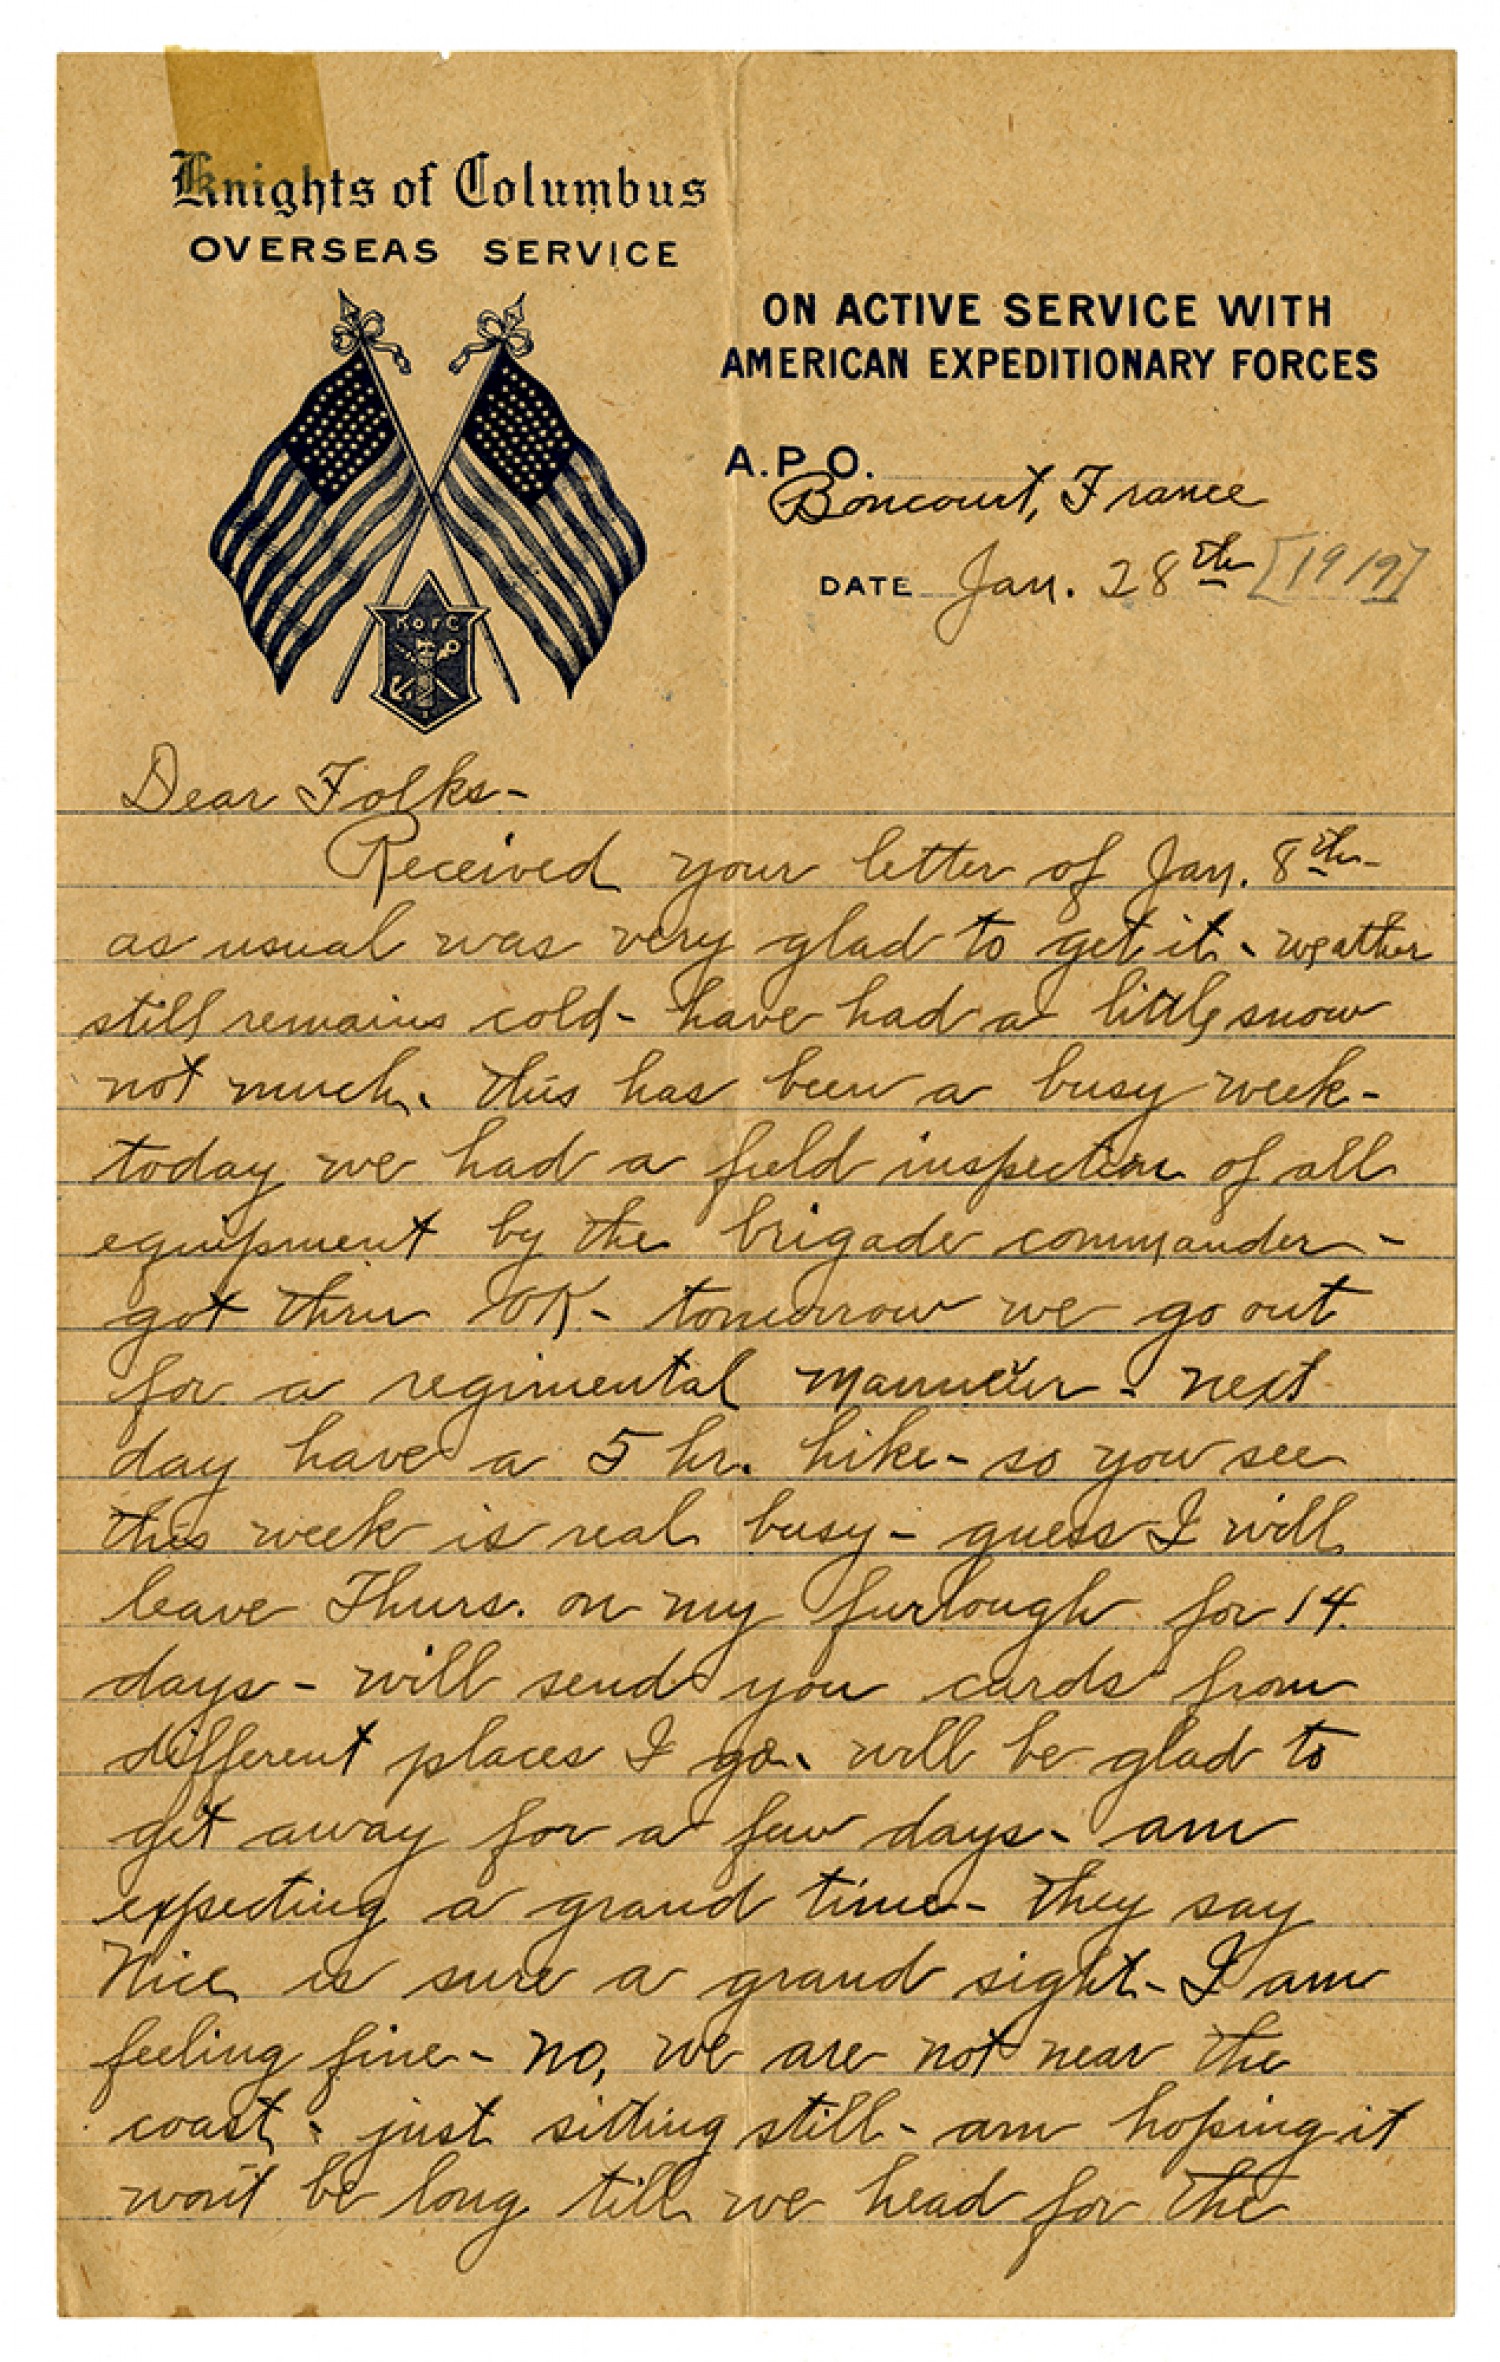 Knights of Columbus
OVERSEAS SERVICE
ON ACTIVE SERVICE WITH
AMERICAN EXPEDITIONARY FORCES
A.P.O.
Boncourt, France
DATE Jan. 28th [1919]
K of C
Dear Folks-
Received your letter of Jan. 8th-
as usual was very glad to get it - weather
still remains cold - have had a little snow
not much. this has been a busy week-
today we had a field inspection of all
equipment by the brigade commander-
got thru OK - tomorrow we go out
for a regimental - next
day have a 5 hr. hike - so you see
this week is real busy - guess I will
leave Thurs. on my furlough for 14
days - will send you cards from
different places I go. will be glad to
get away for a few days - am
expecting a grand time - they say
Nice is sure a grand sight - I am
feeling fine - no, we are not near the
coast - just sitting still - am hoping it
won't be long till we head for the